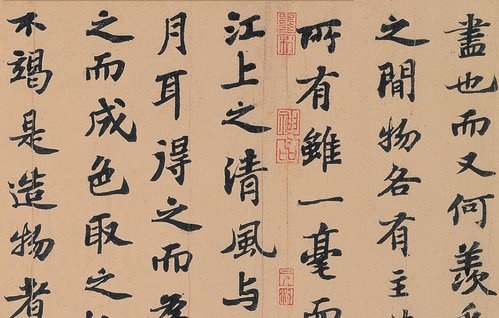 盡也而又何羨乎
之間物各有主
所有雖一毫而
江上之清風与
月耳得之而為
之而成色取之
不竭是造物者